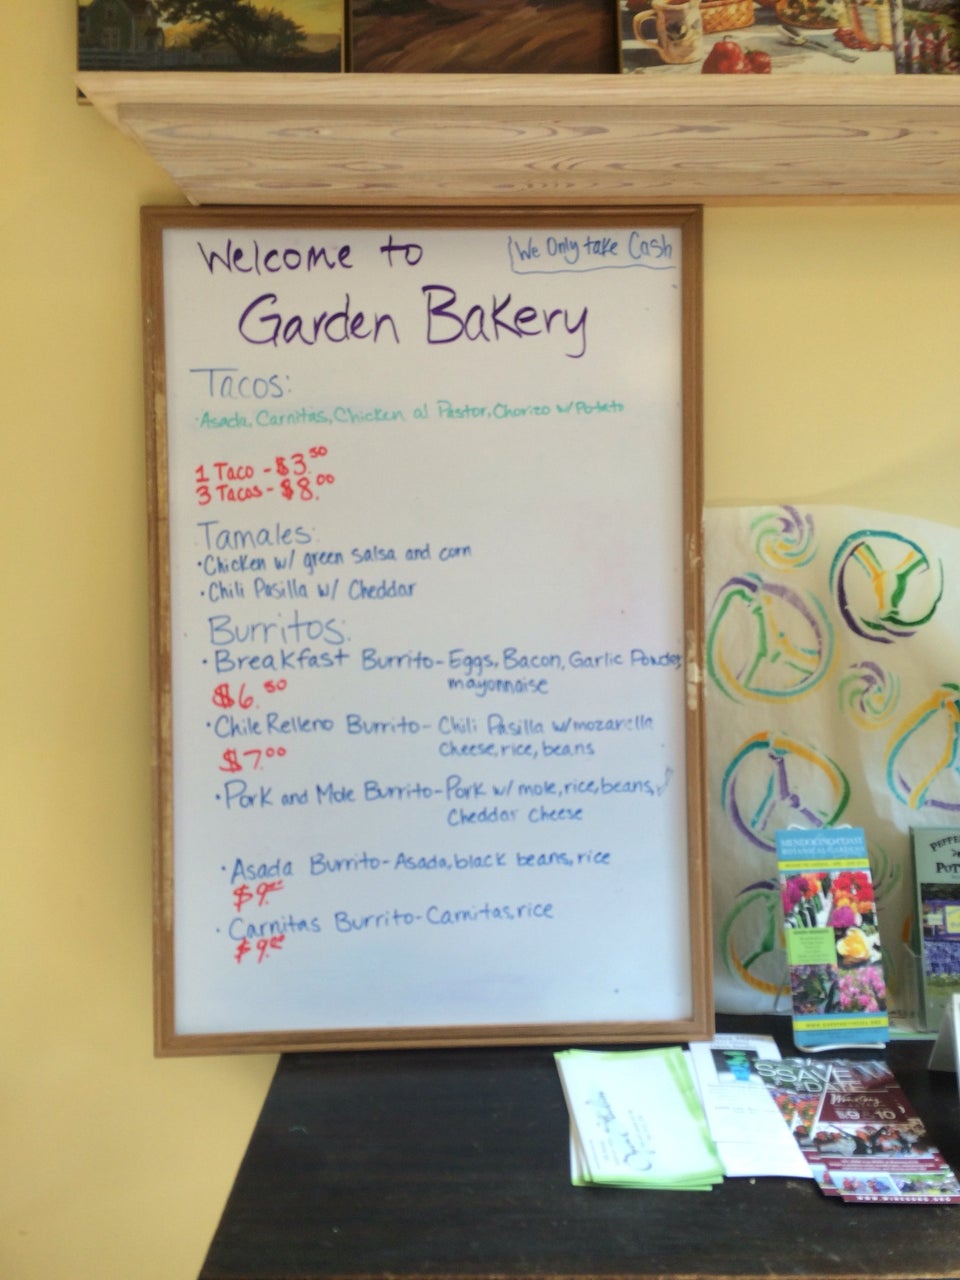 Welcome to
We Only take Cash
Garden Bakery
Tacos:
·Asada, Carnitas, Chicken al Pastor, Chorizo w/Potato
1 Taco - $3.50
3 Tacos - $8.00
Tamales:
·Chicken w/ green salsa and corn
·Chili Pasilla w/ Cheddar
Burritos:
·Breakfast Burrito- Eggs, Bacon, Garlic Powder,
mayonnaise
$6.50
·Chile Relleno Burrito- Chili Pasilla w/mozarella
cheese, rice, beans
$7.00
·Pork and Mole Burrito- Pork w/ mole, rice, beans,
Cheddar cheese
·Asada Burrito- Asada, black beans, rice
$9.00
·Carnitas Burrito- Carnitas, rice
$9.00
MENDOCINO COAST
BOTANICAL GARDENS
PEPPE
POT
SAVE
DATE